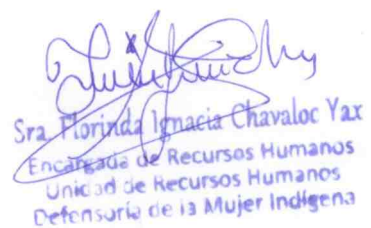 Sra. Florinda Ignacia Chavaloc Yax
Encargada de Recursos Humanos
Unidad de Recursos Humanos
Defensoría de la Mujer Indígena